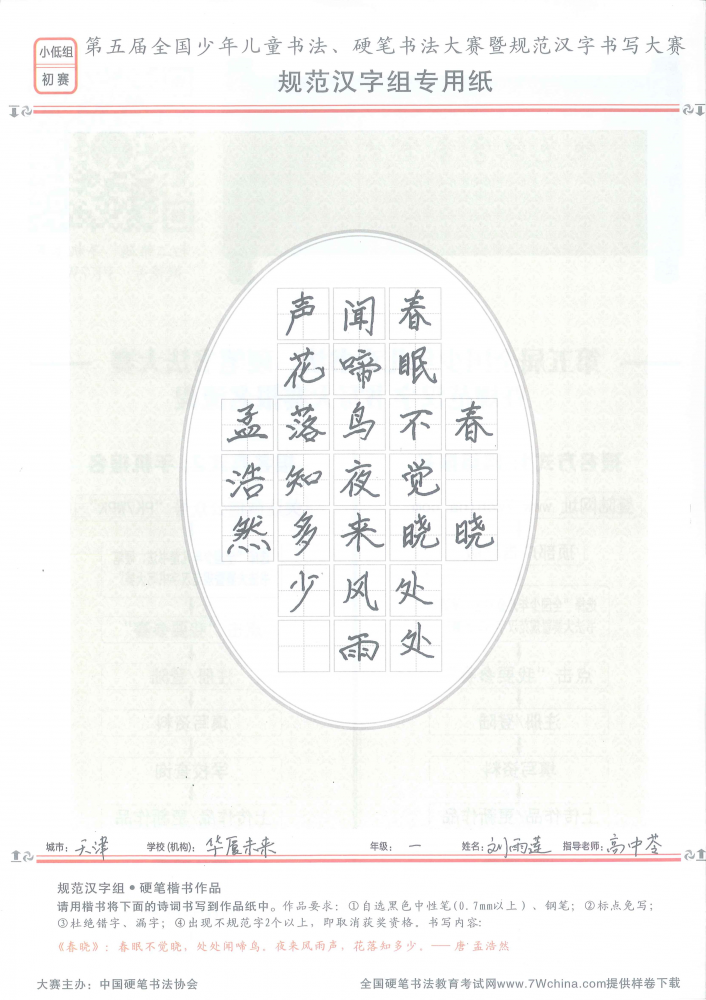 小低组
初赛
第五届全国少年儿童书法、硬笔书法大赛暨规范汉字书写大赛
规范汉字组专用纸
春晓
春眠不觉晓处处
闻啼鸟夜来风雨
声花落知多少
孟浩然
城市：天津 学校(机构)：华厦未来 年级：一 姓名：刘雨莲 指导老师：高中苓
规范汉字组·硬笔楷书作品
请用楷书将下面的诗词书写到作品纸中。作品要求：①自选黑色中性笔(0.7mm以上)、钢笔；②标点免写；
③杜绝错字、漏字；④出现不规范字2个以上，即取消获奖资格。书写内容：
《春晓》：春眠不觉晓，处处闻啼鸟。夜来风雨声，花落知多少。——唐·孟浩然
大赛主办：中国硬笔书法协会
全国硬笔书法教育考试网www.7Wchina.com提供样卷下载